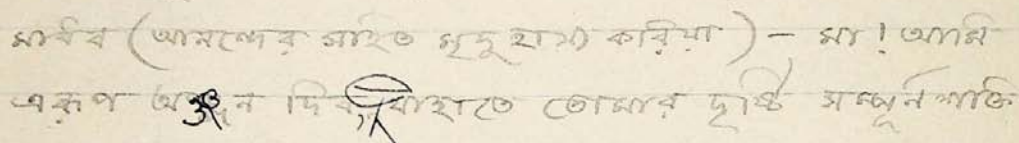 মাধব (আনন্দের সহিত মৃদু হাস্য করিয়া) - মা! আমি
এরূপ অঞ্জন দিব, যাহাতে তোমার দৃষ্টি সম্পূর্ন শক্তি